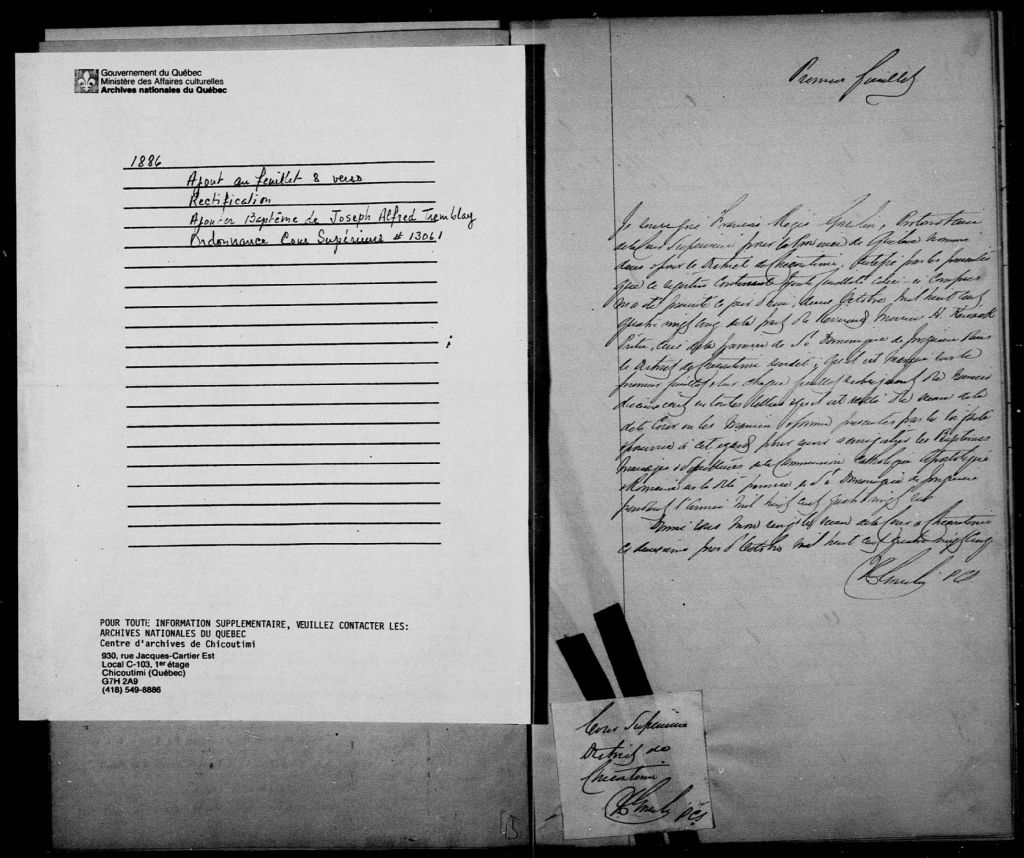 Gouvernement du Québec
Ministère des Affaires culturelles
Archives nationales du Québec
1886
Ajout au feuillet 8 verso
Rectification
Ajouter Baptême de Joseph Alfred Tremblay
Ordonnance Cour Supérieure # 13061
POUR TOUTE INFORMATION SUPPLEMENTAIRE, VEUILLEZ CONTACTER LES:
ARCHIVES NATIONALES DU QUEBEC
Centre d'archives de Chicoutimi
930, rue Jacques-Cartier Est
Local C-103, 1er étage
Chicoutimi (Québec)
G7H 2A9
(418) 549-8886
Premier feuillet
Je soussigné Francois Régis Gosselin, Protonotaire
de la Cour Supérieure pour la Province de Québec nommé
dans & pour le District de Chicoutimi, Certifie par les présentes
que ce registre contenant feuillets celui-ci compris
m'a été présenté ce jour d'hui, Octobre mil huit cent
quatre vingt cinq de la part du Révérend Messire H.
Prêtre, Curé de la paroisse de St Dominique de Jonquière dans
le District de Chicoutimi susdit; qu'il est marqué sur le
premier feuillet & sur chaque feuillet subséquent du numéro
en toutes lettres & qu'il est scellé du sceau de la
dite Cour en la manière & forme prescrites par la loi faite
& pourvue à cet égard pour servir à enregistrer les Baptêmes
Mariages & Sépultures de la Communion Catholique Apostolique
& Romaine en la dite paroisse de St Dominique de Jonquière
pendant l'année mil huit cent quatre vingt six
Donné sous mon seing & le sceau de la Cour à Chicoutimi
ce jour d'Octobre mil huit cent quatre vingt cinq
PCS
Cour Supérieure
District de
Chicoutimi
PCS